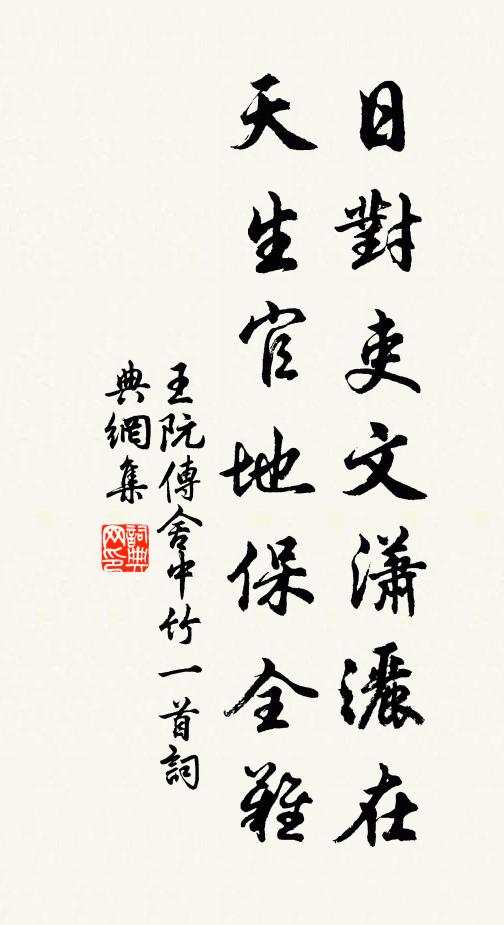 日對吏文瀟灑在
天生官地保全難
王阮傳舍中竹一首詞
典網集
詞典
网印